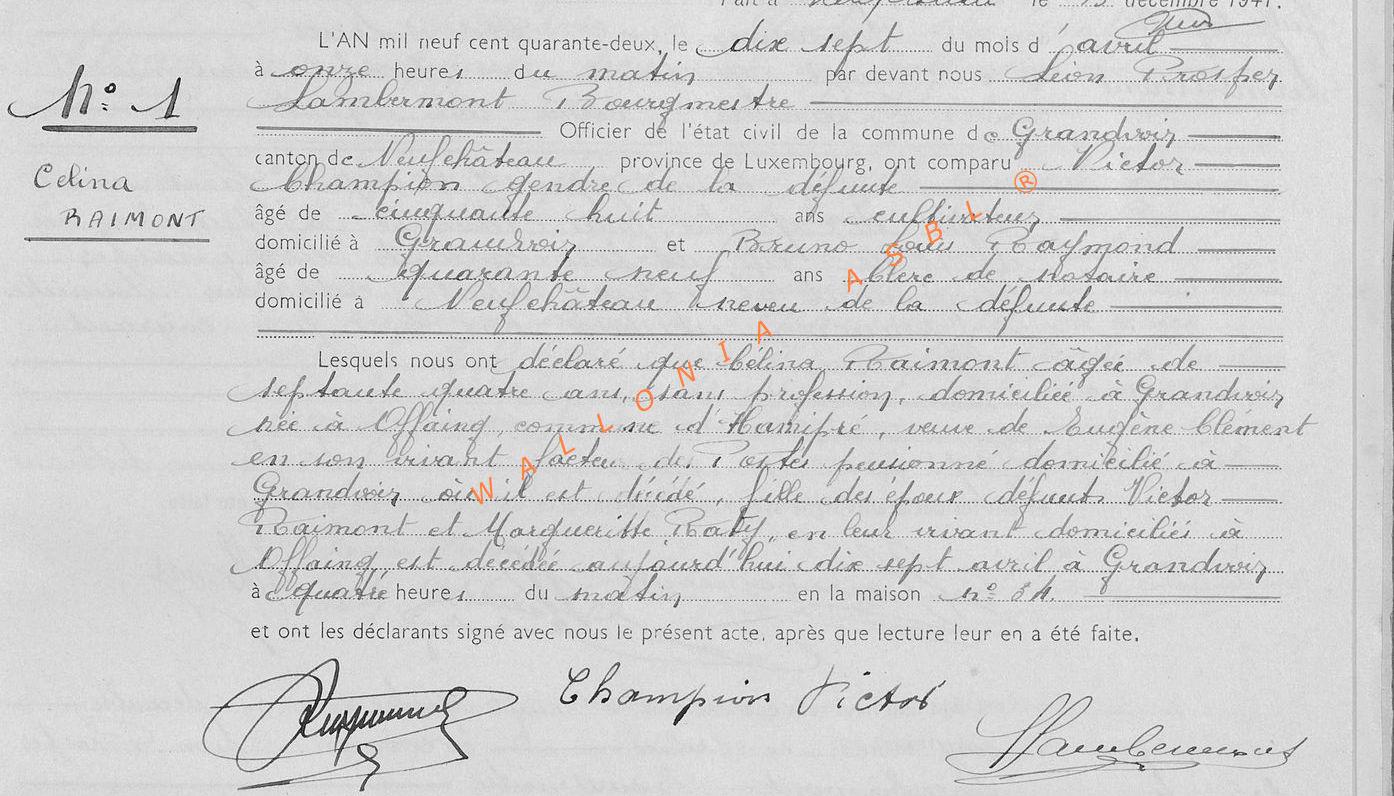 le 15 décembre 1941.
L'AN mil neuf cent quarante-deux, le dix sept du mois d'avril
à onze heures du matin par devant nous Léon Prosper
Lambermont Bourgmestre
Officier de l'état civil de la commune de Grandvoir
canton de Neufchâteau province de Luxembourg, ont comparu Victor
Champion gendre de la défunte
âgé de cinquante huit ans cultivateur
domicilié à Grandvoir et Bruno Louis Raymond
âgé de quarante neuf ans clerc de notaire
domicilié à Neufchâteau neveu de la défunte
Lesquels nous ont déclaré que Célina Raimont âgée de
septante quatre ans, sans profession, domiciliée à Grandvoir
née à Offaing, commune d'Hamipré, veuve de Eugène Clément
en son vivant facteur des Postes pensionné domicilié à
Grandvoir où il est décédé, fille des époux défunts Victor
Raimont et Margueritte Raty, en leur vivant domiciliés à
Offaing est décédée aujourd'hui dix sept avril à Grandvoir
à quatre heures du matin en la maison n°
et ont les déclarants signé avec nous le présent acte, après que lecture leur en a été faite.
Champion Victor
Lambermont
N° 1
Celina
RAIMONT
WALLONIA ASBL ®